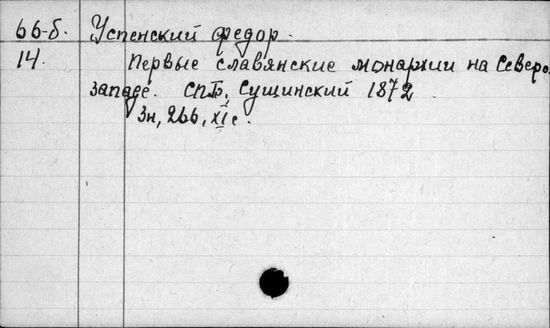 66-б. Успенский Федор.
14. Первые славянские монархии на Северо.
западе. СПБ, Сущинский 1872
3н, 266, XI с.